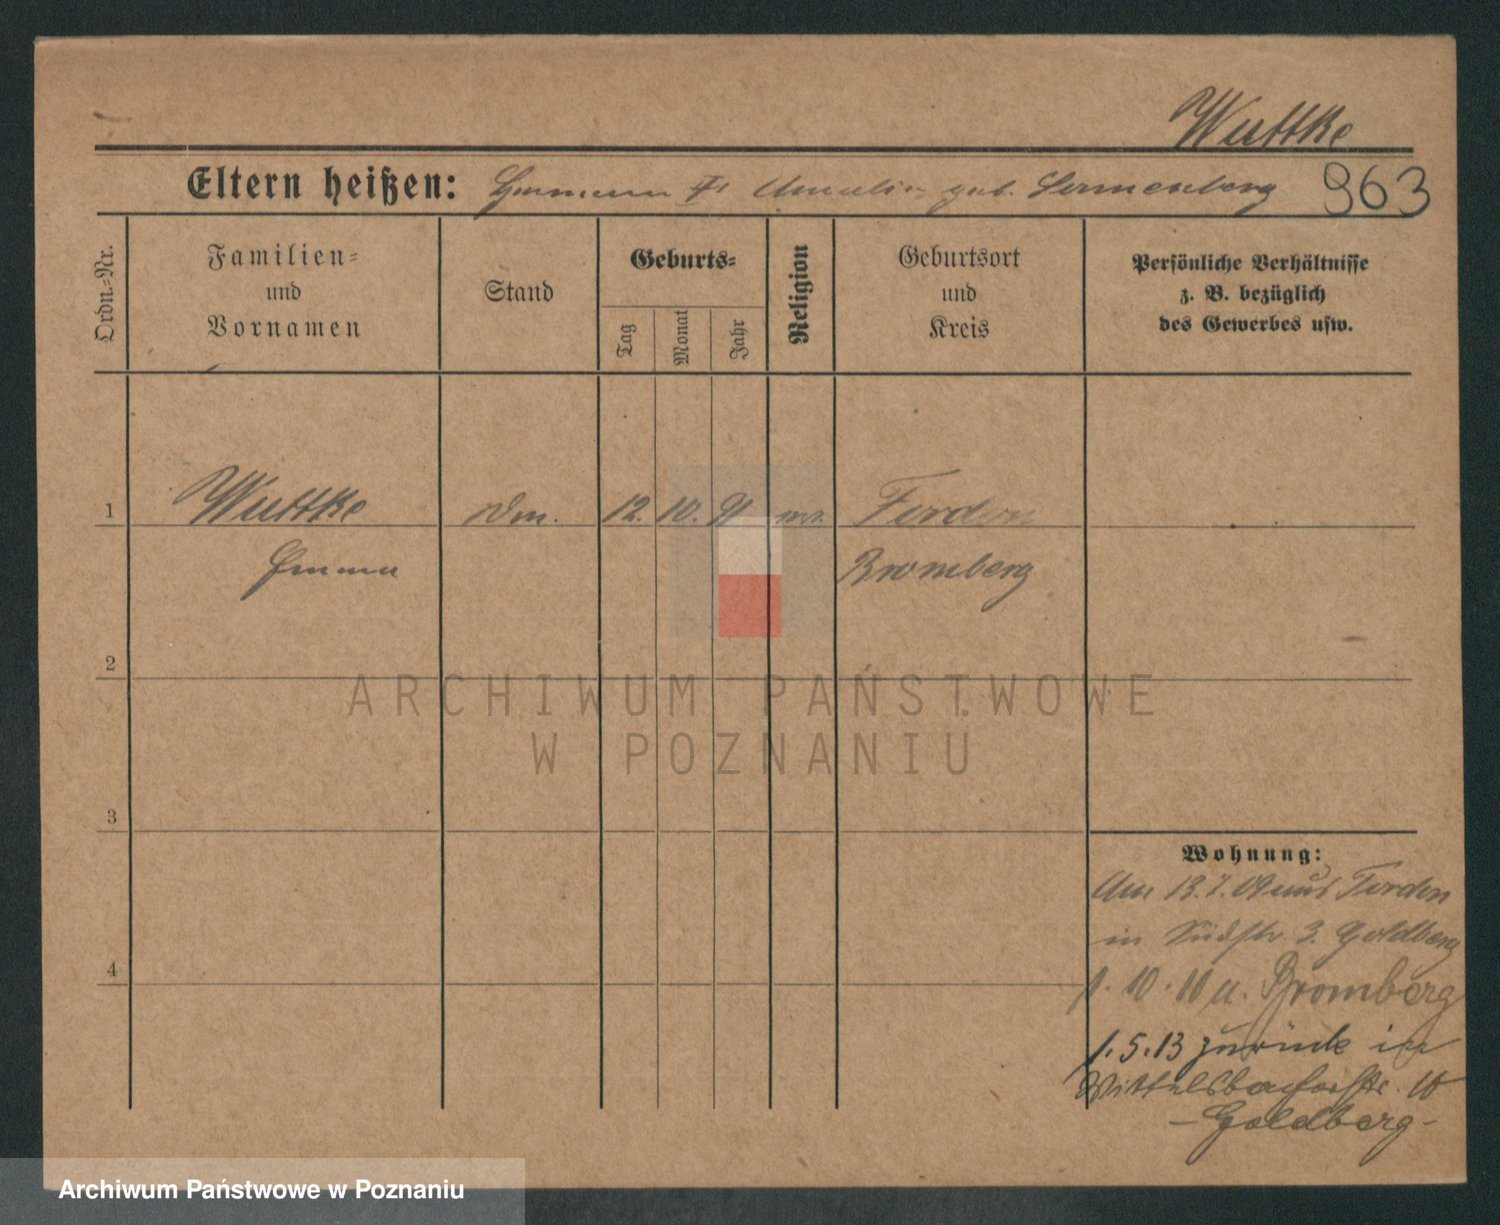 Wuttke
Eltern heißen: Hermann Amalie geb. Sonnenberg
963
Ordn.=Nr.
Familien=
und
Vornamen
Stand
Geburts=
Tag
Monat
Jahr
Religion
Geburtsort
und
Kreis
Persönliche Verhältnisse
z. B. bezüglich
des Gewerbes usw.
1
Wuttke
12. 10. 91
Fordon
Emma
Bromberg
2
3
4
Wohnung:
Am 13.7.09 aus Fordon
in Südstr 3. Goldberg
1.10.10 n. Bromberg
1.5.13 zurück in
-Goldberg-
ARCHIWUM PAŃSTWOWE
W POZNANIU
Archiwum Państwowe w Poznaniu